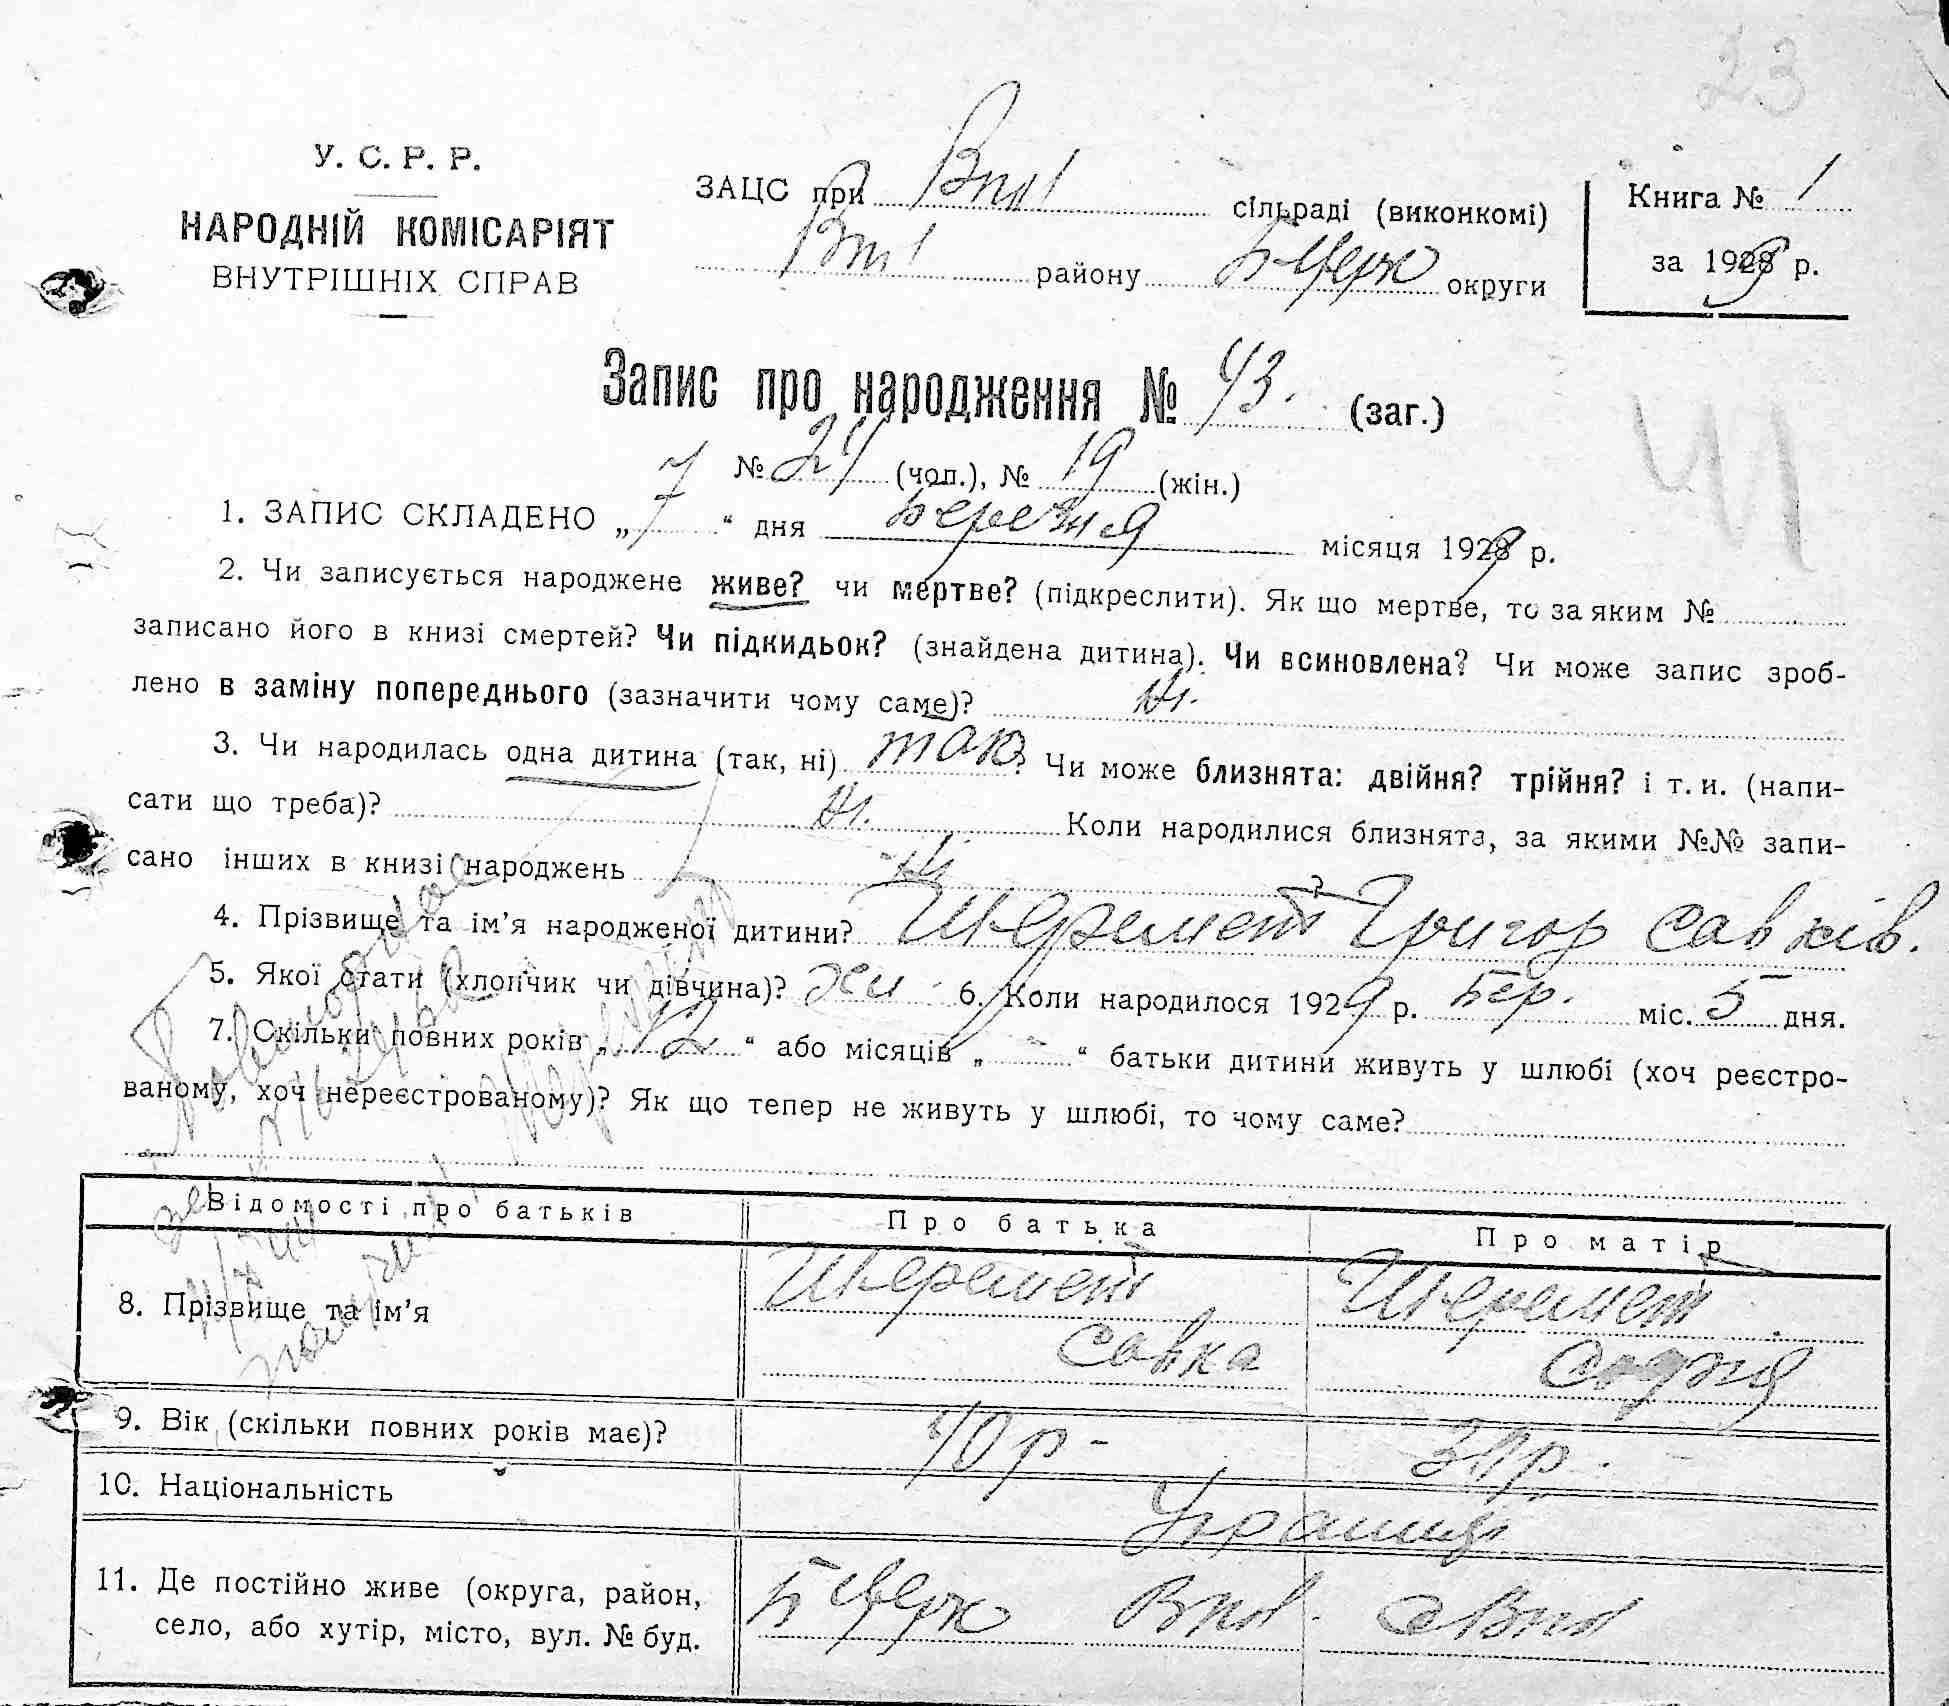 23
У. С. Р. Р.
НАРОДНІЙ КОМІСАРІЯТ
ВНУТРІШНІХ СПРАВ
ЗАЦС при сільраді (виконкомі)
району Бцерк округи
Книга № 1
за 1929 р.
Запис про народження № 43. (заг.)
№ 24 (чол.), № 19 (жін.)
41
1. ЗАПИС СКЛАДЕНО „7“ дня березня місяця 1929 р.
2. Чи записується народжене живе? чи мертве? (підкреслити). Як що мертве, то за яким №
записано його в книзі смертей? Чи підкидьок? (знайдена дитина). Чи всиновлена? Чи може запис зроб-
лено в заміну попереднього (зазначити чому саме)? Ні.
3. Чи народилась одна дитина (так, ні) так? Чи може близнята: двійня? трійня? і т. и. (напи-
сати що треба)? Ні. Коли народилися близнята, за якими №№ запи-
сано інших в книзі народжень Ні
4. Прізвище та ім’я народженої дитини? Шеремет Григор Савків.
5. Якої стати (хлопчик чи дівчина)? 6. Коли народилося 1929 р. Бер. міс. 5 дня.
7. Скільки повних років „12“ або місяців „-“ батьки дитини живуть у шлюбі (хоч реєстро-
ваному, хоч нереєстрованому)? Як що тепер не живуть у шлюбі, то чому саме?
Відомості про батьків Про батька Про матір
8. Прізвище та ім’я Шеремет Шеремет
Савка Софія
9. Вік (скільки повних років має)? 40 р -
10. Національність Українці
11. Де постійно живе (округа, район, Бцерк
село, або хутір, місто, вул. № буд.